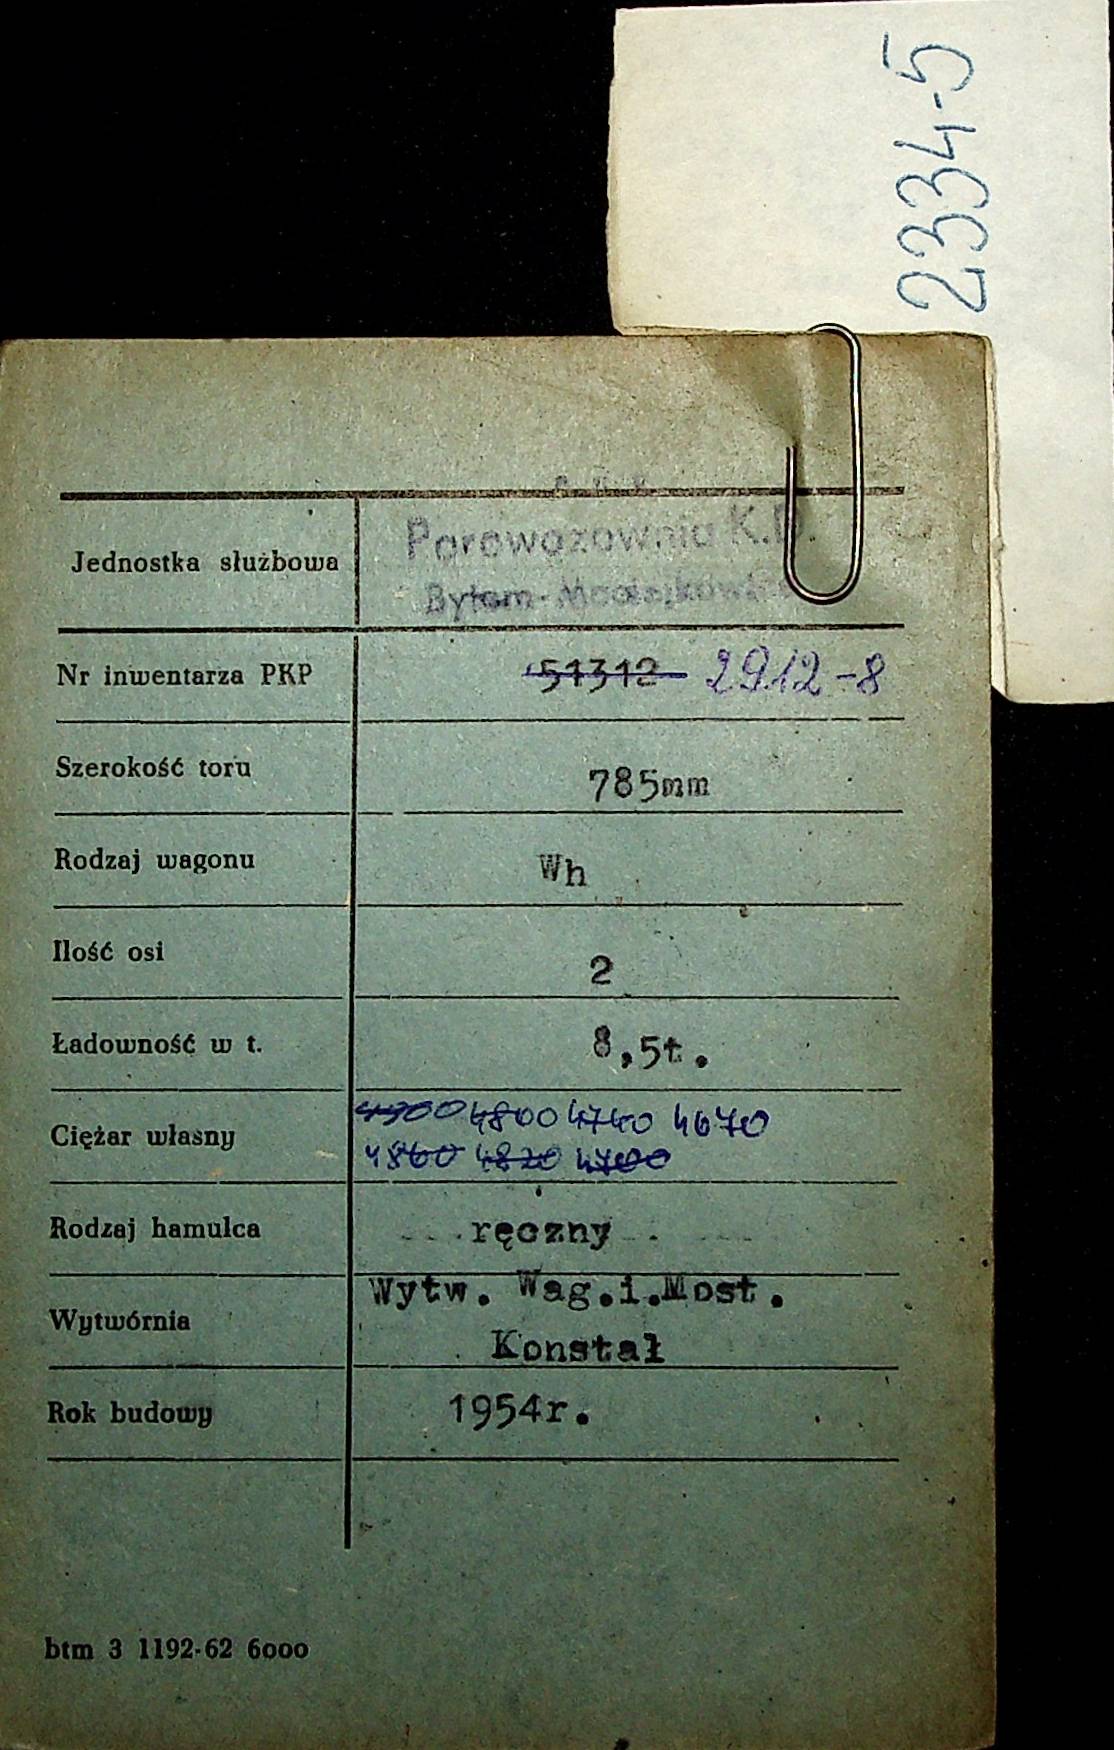 2334-5
Jednostka służbowa
Parowozownia K.D.
Bytom-
Nr inwentarza PKP 51312 2912-8
Szerokość toru 785mm
Rodzaj wagonu Wh
Ilość osi 2
Ładowność w t. 8,5t.
Ciężar własny
4900 4800 4740 4670
4860 4820 4700
Rodzaj hamulca ręczny
Wytwórnia
Wytw. Wag.i.Most.
Konstał
Rok budowy 1954r.
btm 3 1192-62 6000